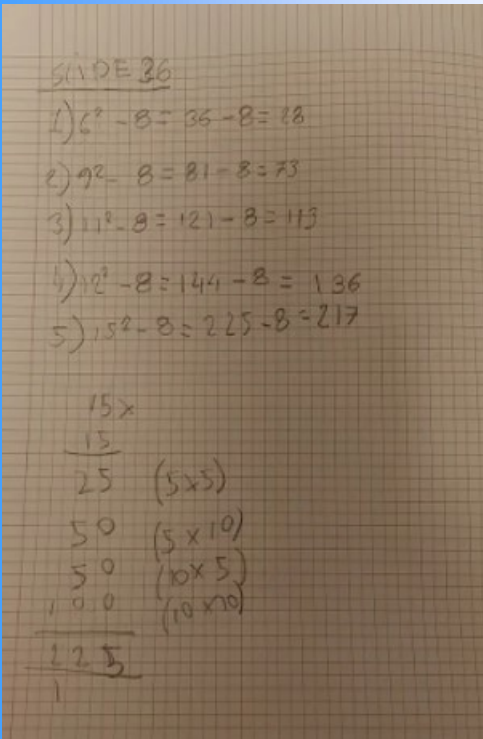 SLIDE 36
1) 6² - 8 = 36 - 8 = 28
2) 9² - 8 = 81 - 8 = 73
3) 11² - 8 = 121 - 8 = 113
4) 12² - 8 = 144 - 8 = 136
5) 15² - 8 = 225 - 8 = 217
15 x
15
25 (5 x 5)
50 (5 x 10)
50 (10 x 5)
100 (10 x 10)
225
1